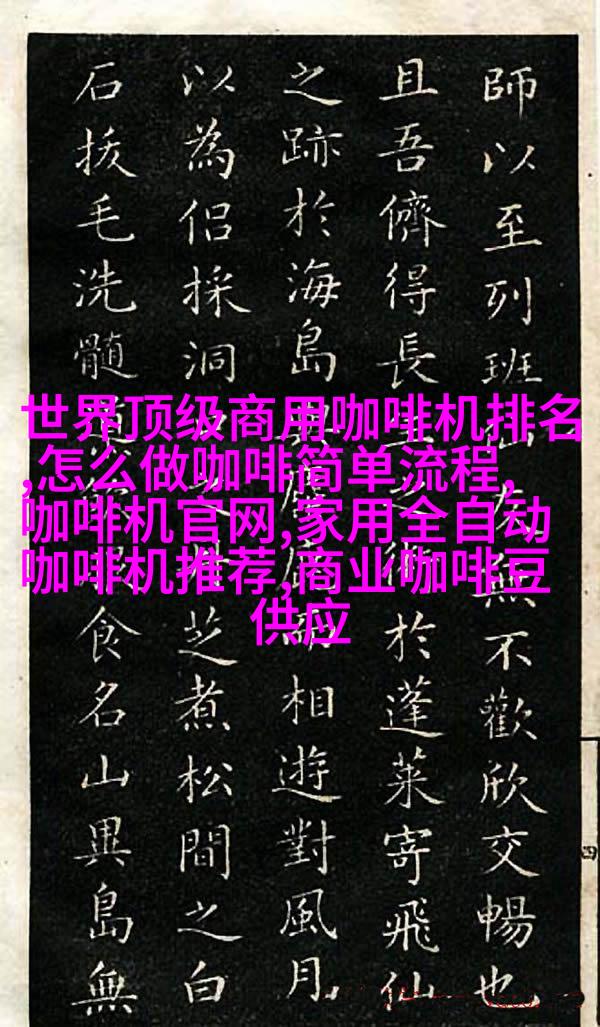 世界顶级商用咖啡机排名
,怎么做咖啡简单流程,
咖啡机官网,家用全自动
咖啡机推荐,商业咖啡豆
供应
師以至列班無不歡欣交暢也
且吾儕得長生之術於蓬萊寄飛仙
之跡於海島相遊對風月
以為侶採洞芝煮松間之白
石拔毛洗髓食名山異島無
四